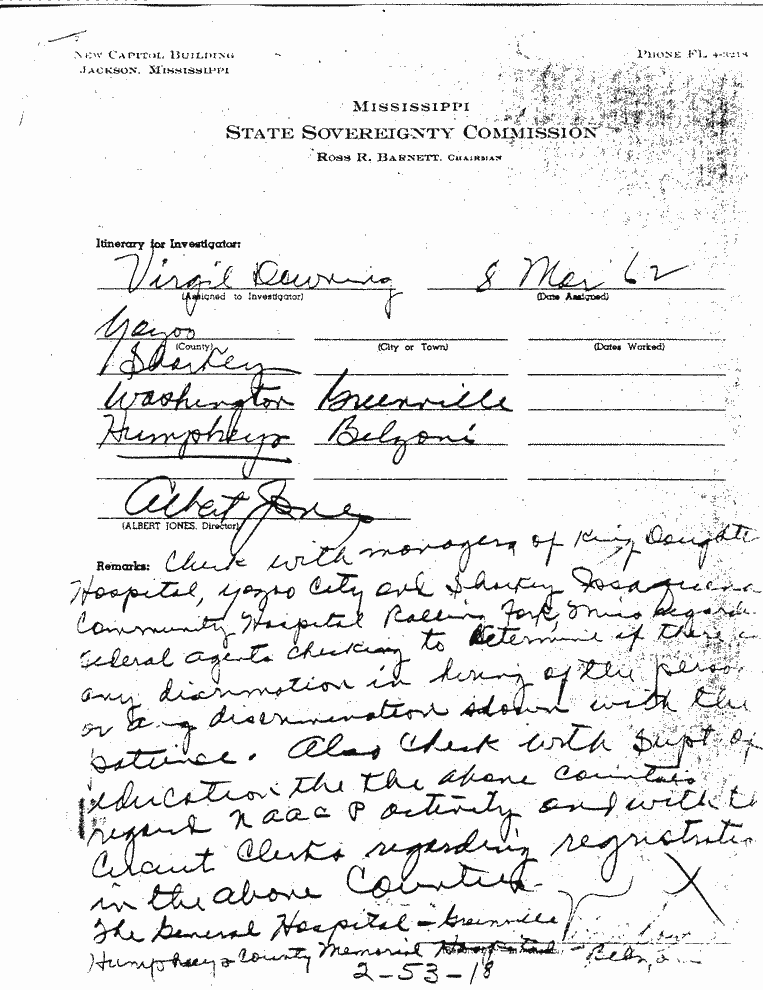 NEW CAPITOL BUILDING
JACKSON, MISSISSIPPI
PHONE FL 4-3218
MISSISSIPPI
STATE SOVEREIGNTY COMMISSION
ROSS R. BARNETT, CHAIRMAN
Itinerary for Investigator:
Virgil Downing 8 Mar 62
(Assigned to Investigator) (Date Assigned)
Yazoo
(County) (City or Town) (Dates Worked)
Sharkey
Washington Greenville
Humphreys Belzoni
Albert Jones
(ALBERT JONES, Director)
Remarks: Check with managers of King Daughte
Hospital, Yazoo City and Sharkey Issaquena
Community Hospital Rolling Fork, Miss regard
ederal agents checking to determine if there
any discrimation in hiring of the person
or any discrimination shown with the
patience. Also check with Supt of
education the the above counties
regard NAACP activity and with t
Circuit Clerks regarding registratio
in the above Counties.
The General Hospital - Greenville
Humphreys County Memorial Hospital - Belzoni
2-53-18